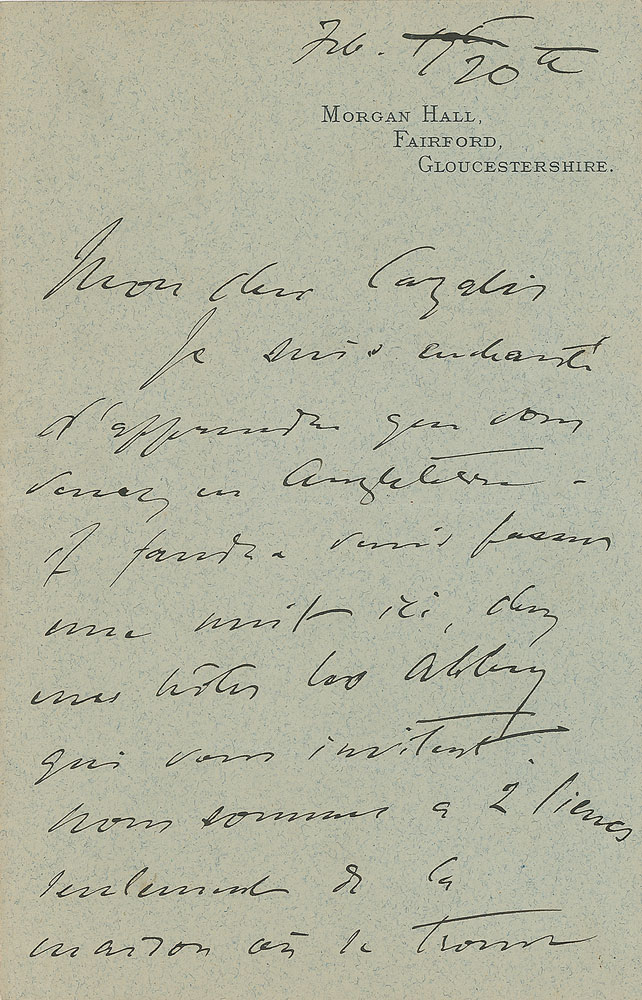 Feb. 20th
MORGAN HALL,
FAIRFORD,
GLOUCESTERSHIRE.
Mon cher Cazalis
Je suis enchanté
d'apprendre que vous
venez en Angleterre -
il faudra venir passer
une nuit ici, chez
mes hôtes les Abbey
qui vous invitent
nous sommes a 2 lieues
seulement de la
maison où se trouve